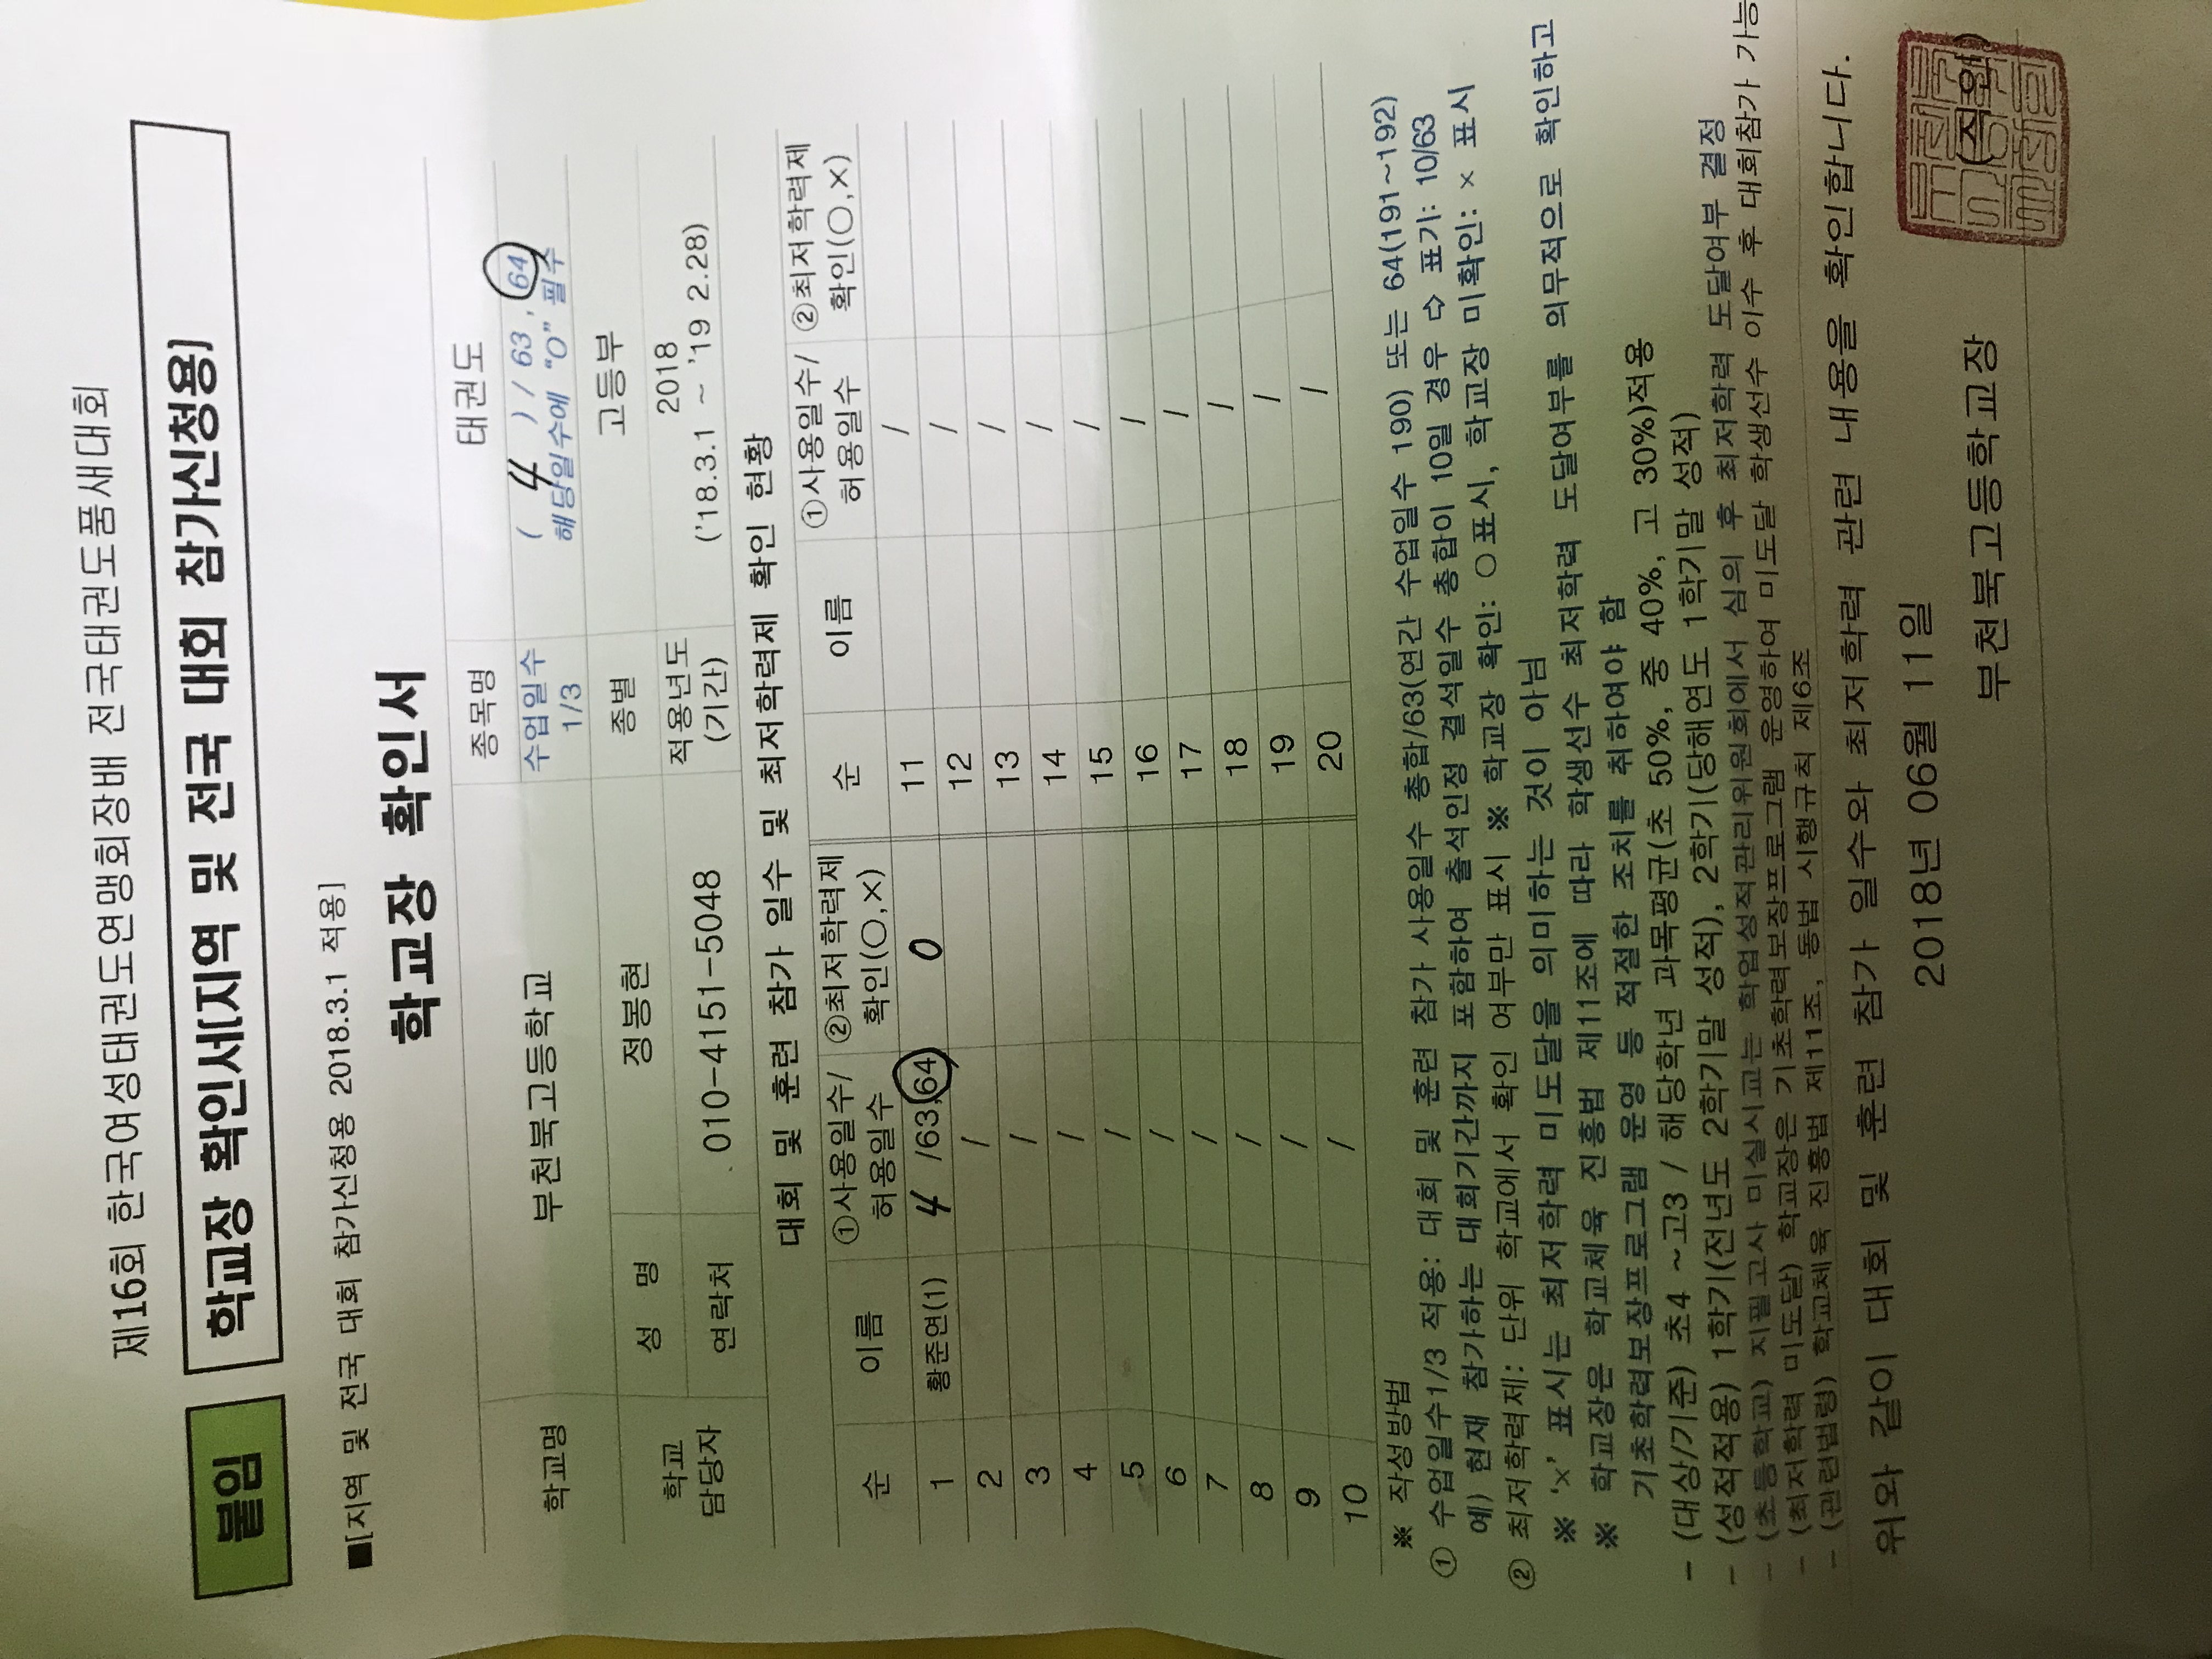 제16회 한국여성태권도연맹회장배 전국태권도품새대회
붙임 학교장 확인서[지역 및 전국 대회 참가신청용]
■[지역 및 전국 대회 참가신청용 2018.3.1 적용]
학교장 확인서
학교명 부천북고등학교 종목명 태권도
수업일수 1/3 ( 4 ) / 63 , 64
해당일수에 "O" 필수
학교 담당자 성 명 정봉현 종별 고등부
연락처 010-4151-5048 적용년도 (기간) 2018
('18.3.1 ~ '19 2.28)
대회 및 훈련 참가 일수 및 최저학력제 확인 현황
순 이름 ①사용일수/허용일수 ②최저학력제 확인(○,×) 순 이름 ①사용일수/허용일수 ②최저학력제 확인(○,×)
1 황준연(1) 4 /63,64 O 11 /
2 / 12 /
3 / 13 /
4 / 14 /
5 / 15 /
6 / 16 /
7 / 17 /
8 / 18 /
9 / 19 /
10 / 20 /
※ 작성방법
① 수업일수1/3 적용: 대회 및 훈련 참가 사용일수 총합/63(연간 수업일수 190) 또는 64(191~192)
예) 현재 참가하는 대회기간까지 포함하여 출석인정 결석일수 총합이 10일 경우 ⇨ 표기: 10/63
② 최저학력제: 단위 학교에서 확인 여부만 표시 ※ 학교장 확인: ○표시, 학교장 미확인: × 표시
※ '×' 표시는 최저학력 미도달을 의미하는 것이 아님
※ 학교장은 학교체육 진흥법 제11조에 따라 학생선수 최저학력 도달여부를 의무적으로 확인하고
기초학력보장프로그램 운영 등 적절한 조치를 취하여야 함
- (대상/기준) 초4 ~고3 / 해당학년 과목평균(초 50%, 중 40%, 고 30%)적용
- (성적적용) 1학기(전년도 2학기말 성적), 2학기(당해연도 1학기말 성적)
- (초등학교) 지필고사 미실시교는 학업성적관리위원회에서 심의 후 최저학력 도달여부 결정
- (최저학력 미도달) 학교장은 기초학력보장프로그램 운영하여 미도달 학생선수 이수 후 대회참가 가능
- (관련법령) 학교체육 진흥법 제11조, 동법 시행규칙 제6조
위와 같이 대회 및 훈련 참가 일수와 최저학력 관련 내용을 확인합니다.
2018년 06월 11일
부천북고등학교장 (직인)